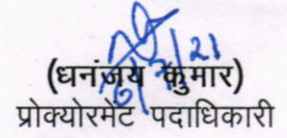 (धनंजय कुमार)
प्रोक्योरमेंट पदाधिकारी